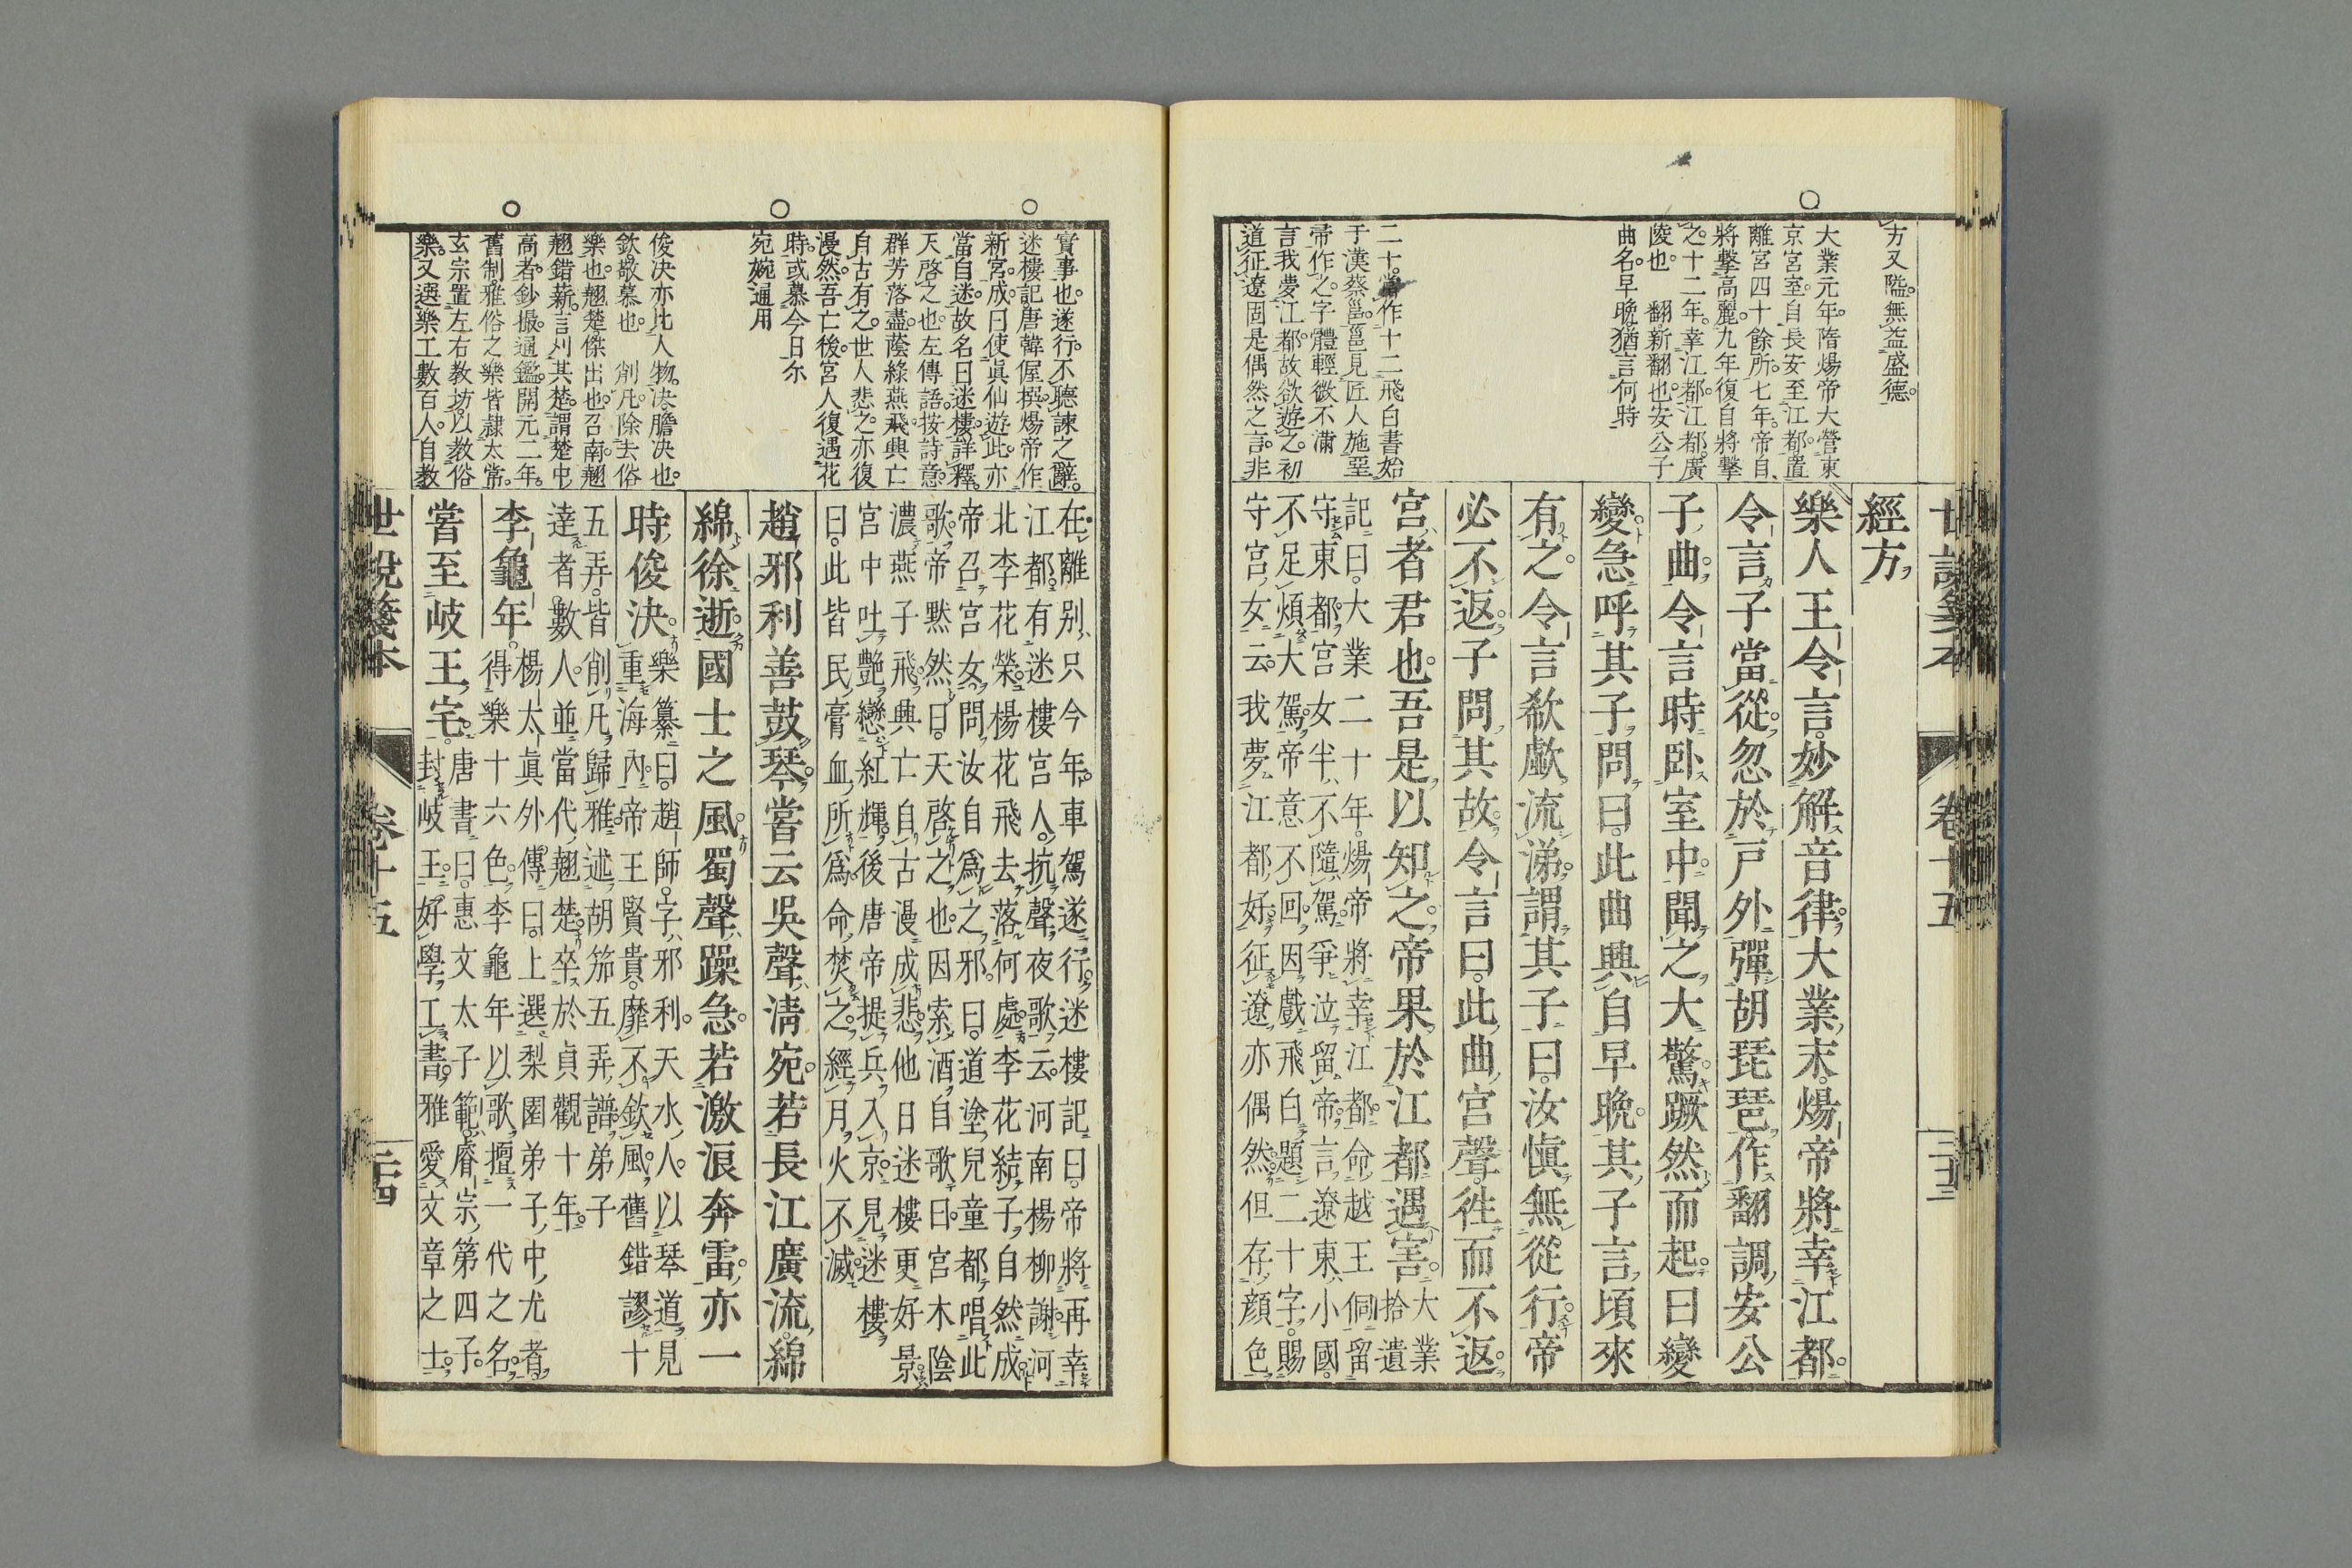 世說箋本 卷十五
方又隘無益盛德
大業元年隋煬帝大營東
京宮室自長安至江都置
離宮四十餘所七年帝自
將擊高麗九年復自將擊
之十二年幸江都江都廣
陵也 翻新翻也安公子
曲名早晚猶言何時
二十當作十二飛白書始
于漢蔡邕邕見匠人施堊
帚作之字體輕微不滿
言我夢江都故欲遊之初
道征遼固是偶然之言非
經方
樂人王令言妙解音律大業末煬帝將幸江都
令言子當從忽於戸外彈胡琵琶作翻調安公
子曲令言時臥室中聞之大驚蹶然而起曰變
變急呼其子問曰此曲興自早晚其子言頃來
有之令言欷歔流涕謂其子曰汝愼無從行帝
必不返子問其故令言曰此曲宮聲徃而不返
宮者君也吾是以知之帝果於江都遇害大業
拾遺
記曰大業二十年煬帝將幸江都命越王侗留
守東都宮女半不隨駕爭泣留帝言遼東小國
不足煩大駕帝意不回因戲飛白題二十字賜
守宮女云我夢江都好征遼亦偶然但存顏色
實事也遂行不聽諫之辭
迷樓記唐韓偓撰煬帝作
新宮成曰使眞仙遊此亦
當自迷故名曰迷樓詳釋
天啓之也左傳語按詩意
群芳落盡蔭綠燕飛興亡
自古有之世人悲之亦復
漫然吾亡後宮人復遇花
時或慕今日尓
宛婉通用
俊決亦比人物決膽決也
欽敬慕也 削凡除去俗
樂也翹楚傑出也召南翹
翹錯薪言刈其楚謂楚中
高者鈔撮通鑑開元二年
舊制雅俗之樂皆隷太常
玄宗置左右教坊以教俗
樂又選樂工數百人自教
在離別只今年車駕遂行迷樓記曰帝將再幸
江都有迷樓宮人抗聲夜歌云河南楊柳謝河
北李花榮楊花飛去落何處李花結子自然成
帝召宮女問汝自爲之邪曰道塗兒童都唱此
歌帝默然曰天啓之也因索酒自歌曰宮木陰
濃燕子飛興亡自古漫成悲他日迷樓更好景
宮中吐艷戀紅輝後唐帝提兵入京見迷樓
曰此皆民膏血所爲命焚之經月火不滅
趙邪利善鼓琴嘗云吳聲淸宛若長江廣流綿
綿徐逝國士之風蜀聲躁急若激浪奔雷亦一
時俊決樂纂曰趙師字邪利天水人以琴道見
重海內帝王賢貴靡不欽風舊錯謬十
五弄皆削凡歸雅述胡笳五弄譜弟子
達者數人並當代翹楚卒於貞觀十年
李龜年楊太眞外傳曰上選梨園弟子中尤者
得樂十六色李龜年以歌擅一代之名
嘗至岐王宅唐書曰惠文太子範睿宗第四子
封岐王好學工書雅愛文章之士
世說箋本 卷十五 二十四